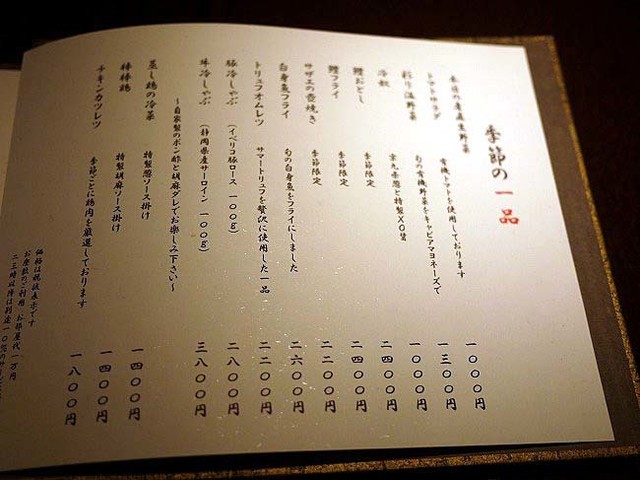 季節の一品
本日の産直生野菜 一〇〇〇円
トマトサラダ 有機トマトを使用しております 一三〇〇円
彩り温野菜 旬の有機野菜をキャビアマヨネーズで 一〇〇〇円
冷奴 京九条葱と特製XO醤 二四〇〇円
鱧おとし 季節限定 二四〇〇円
鱧フライ 季節限定 二二〇〇円
サザエの壺焼き 季節限定 二六〇〇円
白身魚フライ 旬の白身魚をフライにしました 二二〇〇円
トリュフオムレツ サマートリュフを贅沢に使用した一品 二八〇〇円
豚冷しゃぶ （イベリコ豚ロース 一〇〇g） 三八〇〇円
牛冷しゃぶ （静岡県産サーロイン 一〇〇g）
〜自家製のポン酢と胡麻ダレでお楽しみ下さい〜
蒸し鶏の冷菜 特製葱ソース掛け 一四〇〇円
棒棒鶏 特製胡麻ソース掛け 一四〇〇円
チキンカツレツ 季節ごとに鶏肉を厳選しております 一八〇〇円
価格は税抜表示です
お座敷のご利用 お部屋代一万円
二三時以降は別途一〇%の